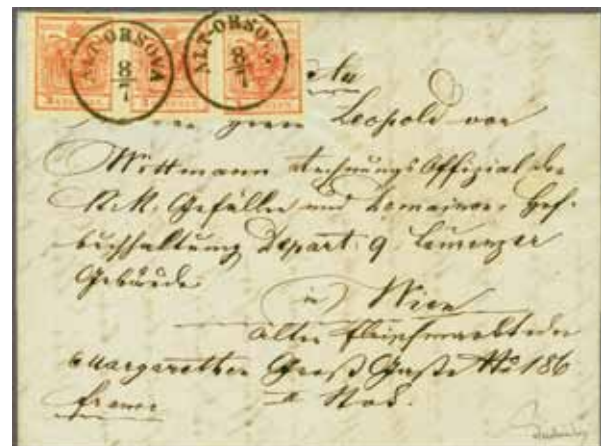 ALT-ORSOVA 8/7
ALT-ORSOVA 8/7
Leopold von
Wittmann Rechnungs Offizial der
K. K. Gefällen und Domainen Hof-
buchhaltung Depart. 9.
Gebäude
in Wien
alter Fleischmarkt
Margarethen Gasse No 186
Stock.
franco